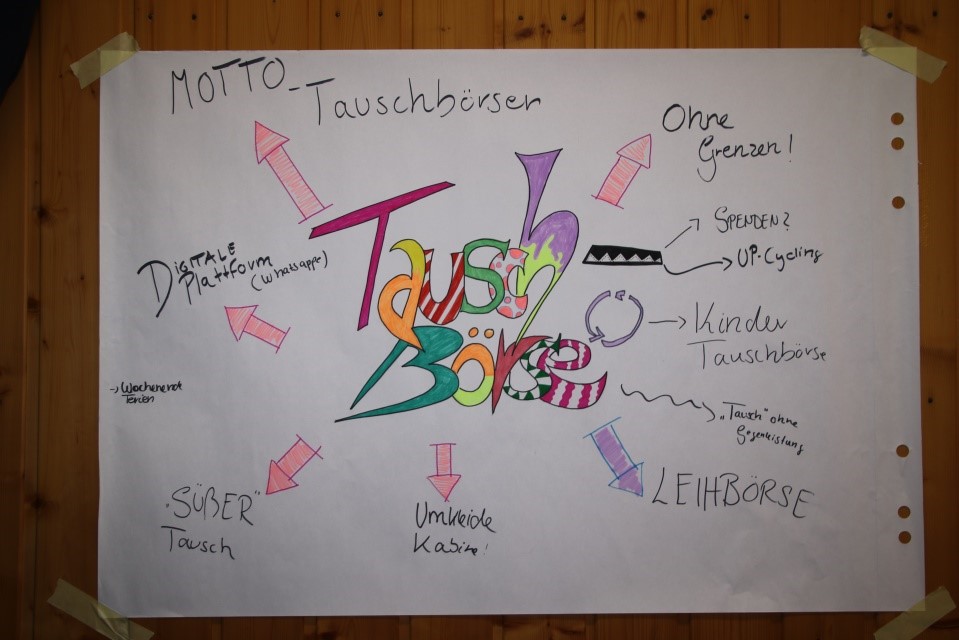 MOTTO-
Tauschbörsen
Ohne
Grenzen!
SPENDEN?
UP-Cycling
DIGITALE
Plattform
(Whatsapp)
Tausch
Börse
Kinder
Tauschbörse
-> Wochenend
"Tausch" ohne
Gegenleistung
"SÜßER"
Tausch
Umkleide
Kabine!
LEIHBÖRSE